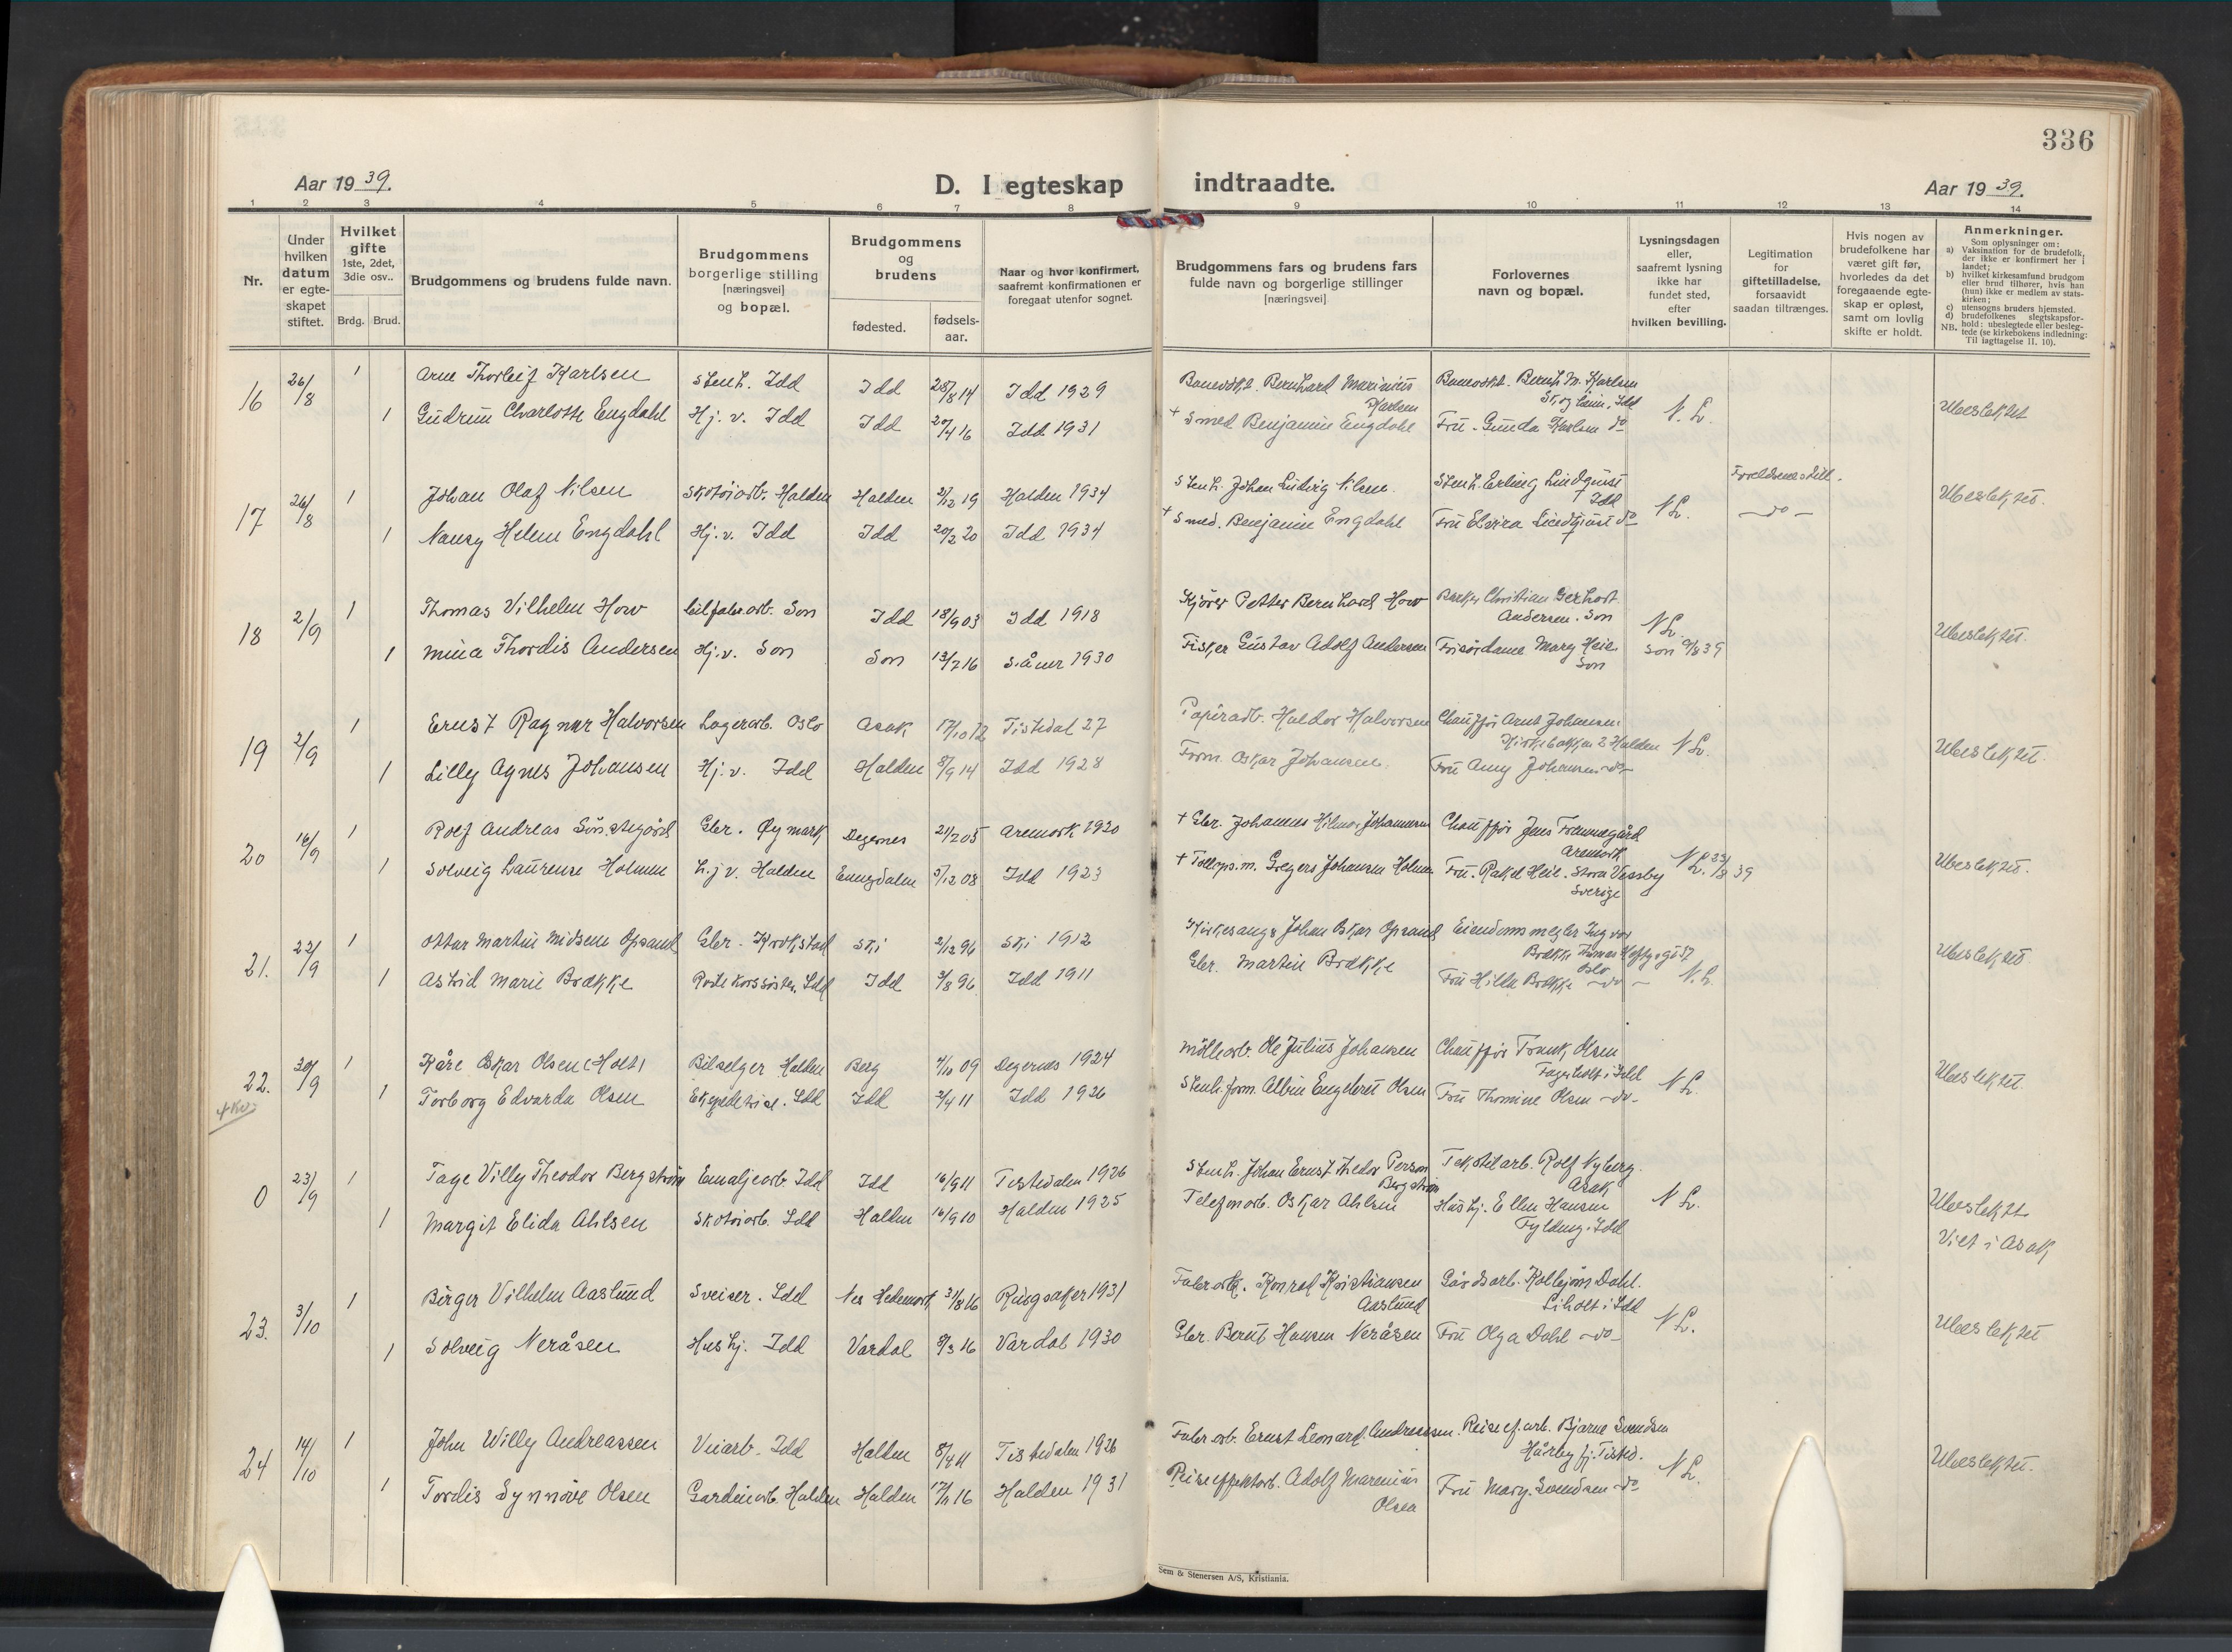 336
Aar 19 39.
D. I egteskap indtraadte.
Aar 19 39.
1 2 3 4 5 6 7 8 9 10 11 12 13 14
Nr.
Under hvilken datum er egte-skapet stiftet.
Hvilket gifte 1ste, 2det, 3die osv..
Brdg. Brud.
Brudgommens og brudens fulde navn.
Brudgommens borgerlige stilling [næringsvei] og bopæl.
Brudgommens og brudens
fødested.
fødsels-aar.
Naar og hvor konfirmert, saafremt konfirmationen er foregaat utenfor sognet.
Brudgommens fars og brudens fars fulde navn og borgerlige stillinger [næringsvei]
Forlovernes navn og bopæl.
Lysningsdagen eller, saafremt lysning ikke har fundet sted, efter hvilken bevilling.
Legitimation for giftetilladelse, forsaavidt saadan tiltrænges.
Hvis nogen av brudefolkene har været gift før, hvorledes da det foregaaende egte-skap er opløst, samt om lovlig skifte er holdt.
Anmerkninger.
Som oplysninger om:
a) Vaksination for de brudefolk, der ikke er konfirmert her i landet;
b) hvilket kirkesamfund brudgom eller brud tilhører, hvis han (hun) ikke er medlem av stats-kirken;
c) utensogns bruders hjemsted.
d) brudefolkenes slegtskapsfor-hold: ubeslegtede eller besleg-tede (se kirkebokens indledning: Til iagttagelse II. 10).
NB.
16 26/8 1 Arne Thorleif Karlsen Stenh. Idd Idd 28/8 14 Idd 1929 Banevokt. Bernhard Marinius Karlsen Banevokt. Bernh. M. Karlsen
1 Gudrun Charlotte Engdahl Hj. v. Idd Idd 20/4 16 Idd 1931 + Smed Benjamin Engdahl Fru Gunda Karlsen do N. L. Ubeslektet
17 26/8 1 Johan Olaf Nilsen Skotöiarb. Halden Halden 2/12 19 Halden 1934 Stenh. Johan Ludvig Nilsen. Stenh. Erling Lindquist Idd Foreldrenes till.
1 Nancy Helene Engdahl Hj. v. Idd Idd 20/2 20 Idd 1934 + Smed. Benjamin Engdahl Fru Elvira Lindquist do N L. - do - Ubeslektet.
18 2/9 1 Thomas Vilhelm How Son Idd 18/9 03 Idd 1918 Kjörer Petter Bernhard How Christian Gerhart Andersen. Son N L.
1 Mina Thordis Andersen Hj. v. Son Son 13/2 16 Såner 1930 Fisker Gustav Adolf Andersen Frisördame Mary Heie Son Ubeslektet.
19 2/9 1 Ernst Ragnar Halvorsen Lagerarb. Oslo Asak 17/10 12 Tistedal 27 Papirarb. Haldor Halvorsen Chauffør Arnt Johansen Kirkebakken 2 Halden N L.
1 Lilly Agnes Johansen Hj. v. Idd Halden 8/9 14 Idd 1928 Form. Oskar Johansen. Fru Amy Johansen - do - Ubeslektet.
20 16/9 1 Rolf Andreas Gbr. Øymark Degernes 21/2 05 Aremark 1920 + Gbr. Johannes Hilmar Johannesen Chauffør Jens Aremark
1 Solveig Laurense Holmen Hj v. Halden Enningdalen 5/12 08 Idd 1923 + Gregers Johansen Holmen Fru. Rakel Heie. Stora Vessby Sverige N L. 39 Ubeslektet.
21. 22/9 1 Ottar Martin Opsand Gbr. Krokstad Ski 2/12 96 Ski 1912 Kirkesang. Johan Oskar Opsand Eiendomsmegler Ingvar Brække Thomas Heftyesgt 57 Oslo
1 Astrid Marie Brække Rödekorssöster. Idd Idd 3/8 96 Idd 1911 Gbr. Martin Brække Fru Hilda Brække - do - N. L. Ubeslektet
22. 30/9 1 Kåre Oskar Olsen (Holt) Bilselger Halden Berg 4/10 09 Degernes 1924 Mölleoarb. Ole Julius Johansen Chauffør Frank Olsen Fagerholt i Idd
1 Torborg Edvarda Olsen Ekspeditrise. Idd Idd 3/4 11 Idd 1926 Stenh. form. Albin Engebret Olsen Fru Thomine Olsen - do - N L. Ubeslektet
0 23/9 1 Tage Villy Theodor Bergström Emaljearb. Idd Idd 16/9 11 Tistedalen 1926 Stenh. Johan Ernst Theodor Person Bergström Tekstilarb. Rolf Nyberg. Asak
1 Margit Elida Ahlsen Skotöiarb. Idd Halden 16/9 10 Halden 1925 Telefonarb. Oskar Ahlsen Hushj. Ellen Hansen Idd N L. Ubeslektet Viet i Asak
23. 3/10 1 Birger Vilhelm Aaslund Sveiser. Idd Nes Hedemark 31/8 16 Ringsaker 1931 Fabr. arb. Konrad Kristiansen Aaslund Gårdsarb. Kolbjörn Dahl. Liholt i Idd
1 Solveig Neråsen Hushj. Idd Vardal 8/3 16 Vardal 1930 Gbr. Bernt Hansen Neråsen Fru Olga Dahl - do - N L. Ubeslektet
24 14/10 1 John Willy Andreassen Veiarb. Idd Halden 8/4 11 Tistedalen 1926 Fabr. arb. Ernst Leonard Andreassen. Reiseef. arb. Bjarne Svendsen
1 Tordis Synnöve Olsen Gardinarb. Halden Halden 17/11 16 Halden 1931 Reiseeffektarb. Adolf Marenius Olsen Fru Mary. Svendsen do N L. Ubeslektet.
Sem & Stenersen A/S, Kristiania.